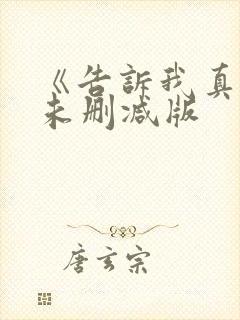 《告訴我真
未删减版
唐玄宗